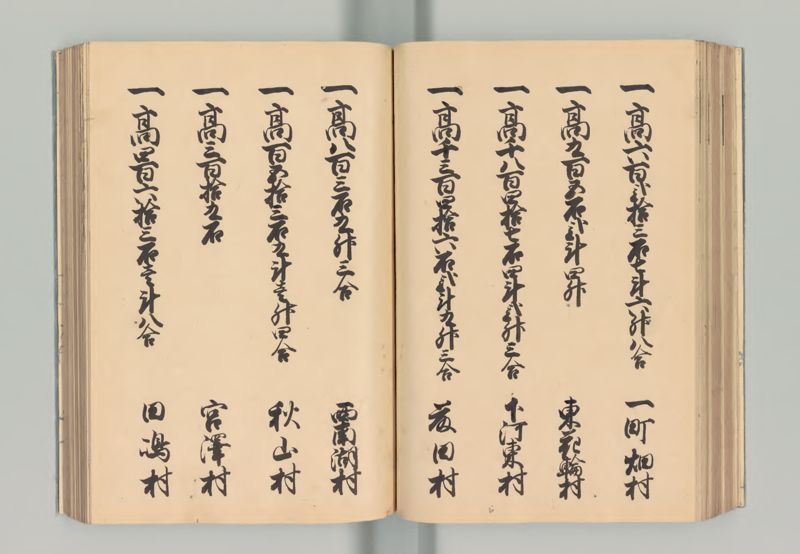 一高六百弐拾三石七斗六升八合 一町畑村
一高九百五石弐斗四升 東花輪村
一高千八百四拾七石四斗弐升三合 下河東村
一高千三百四拾六石弐斗九升三合 藤田村
一高八百三石九升三合 西南湖村
一高百五拾三石九斗壱升四合 秋山村
一高三百拾九石 宮澤村
一高四百六拾三石壱斗八合 田嶋村